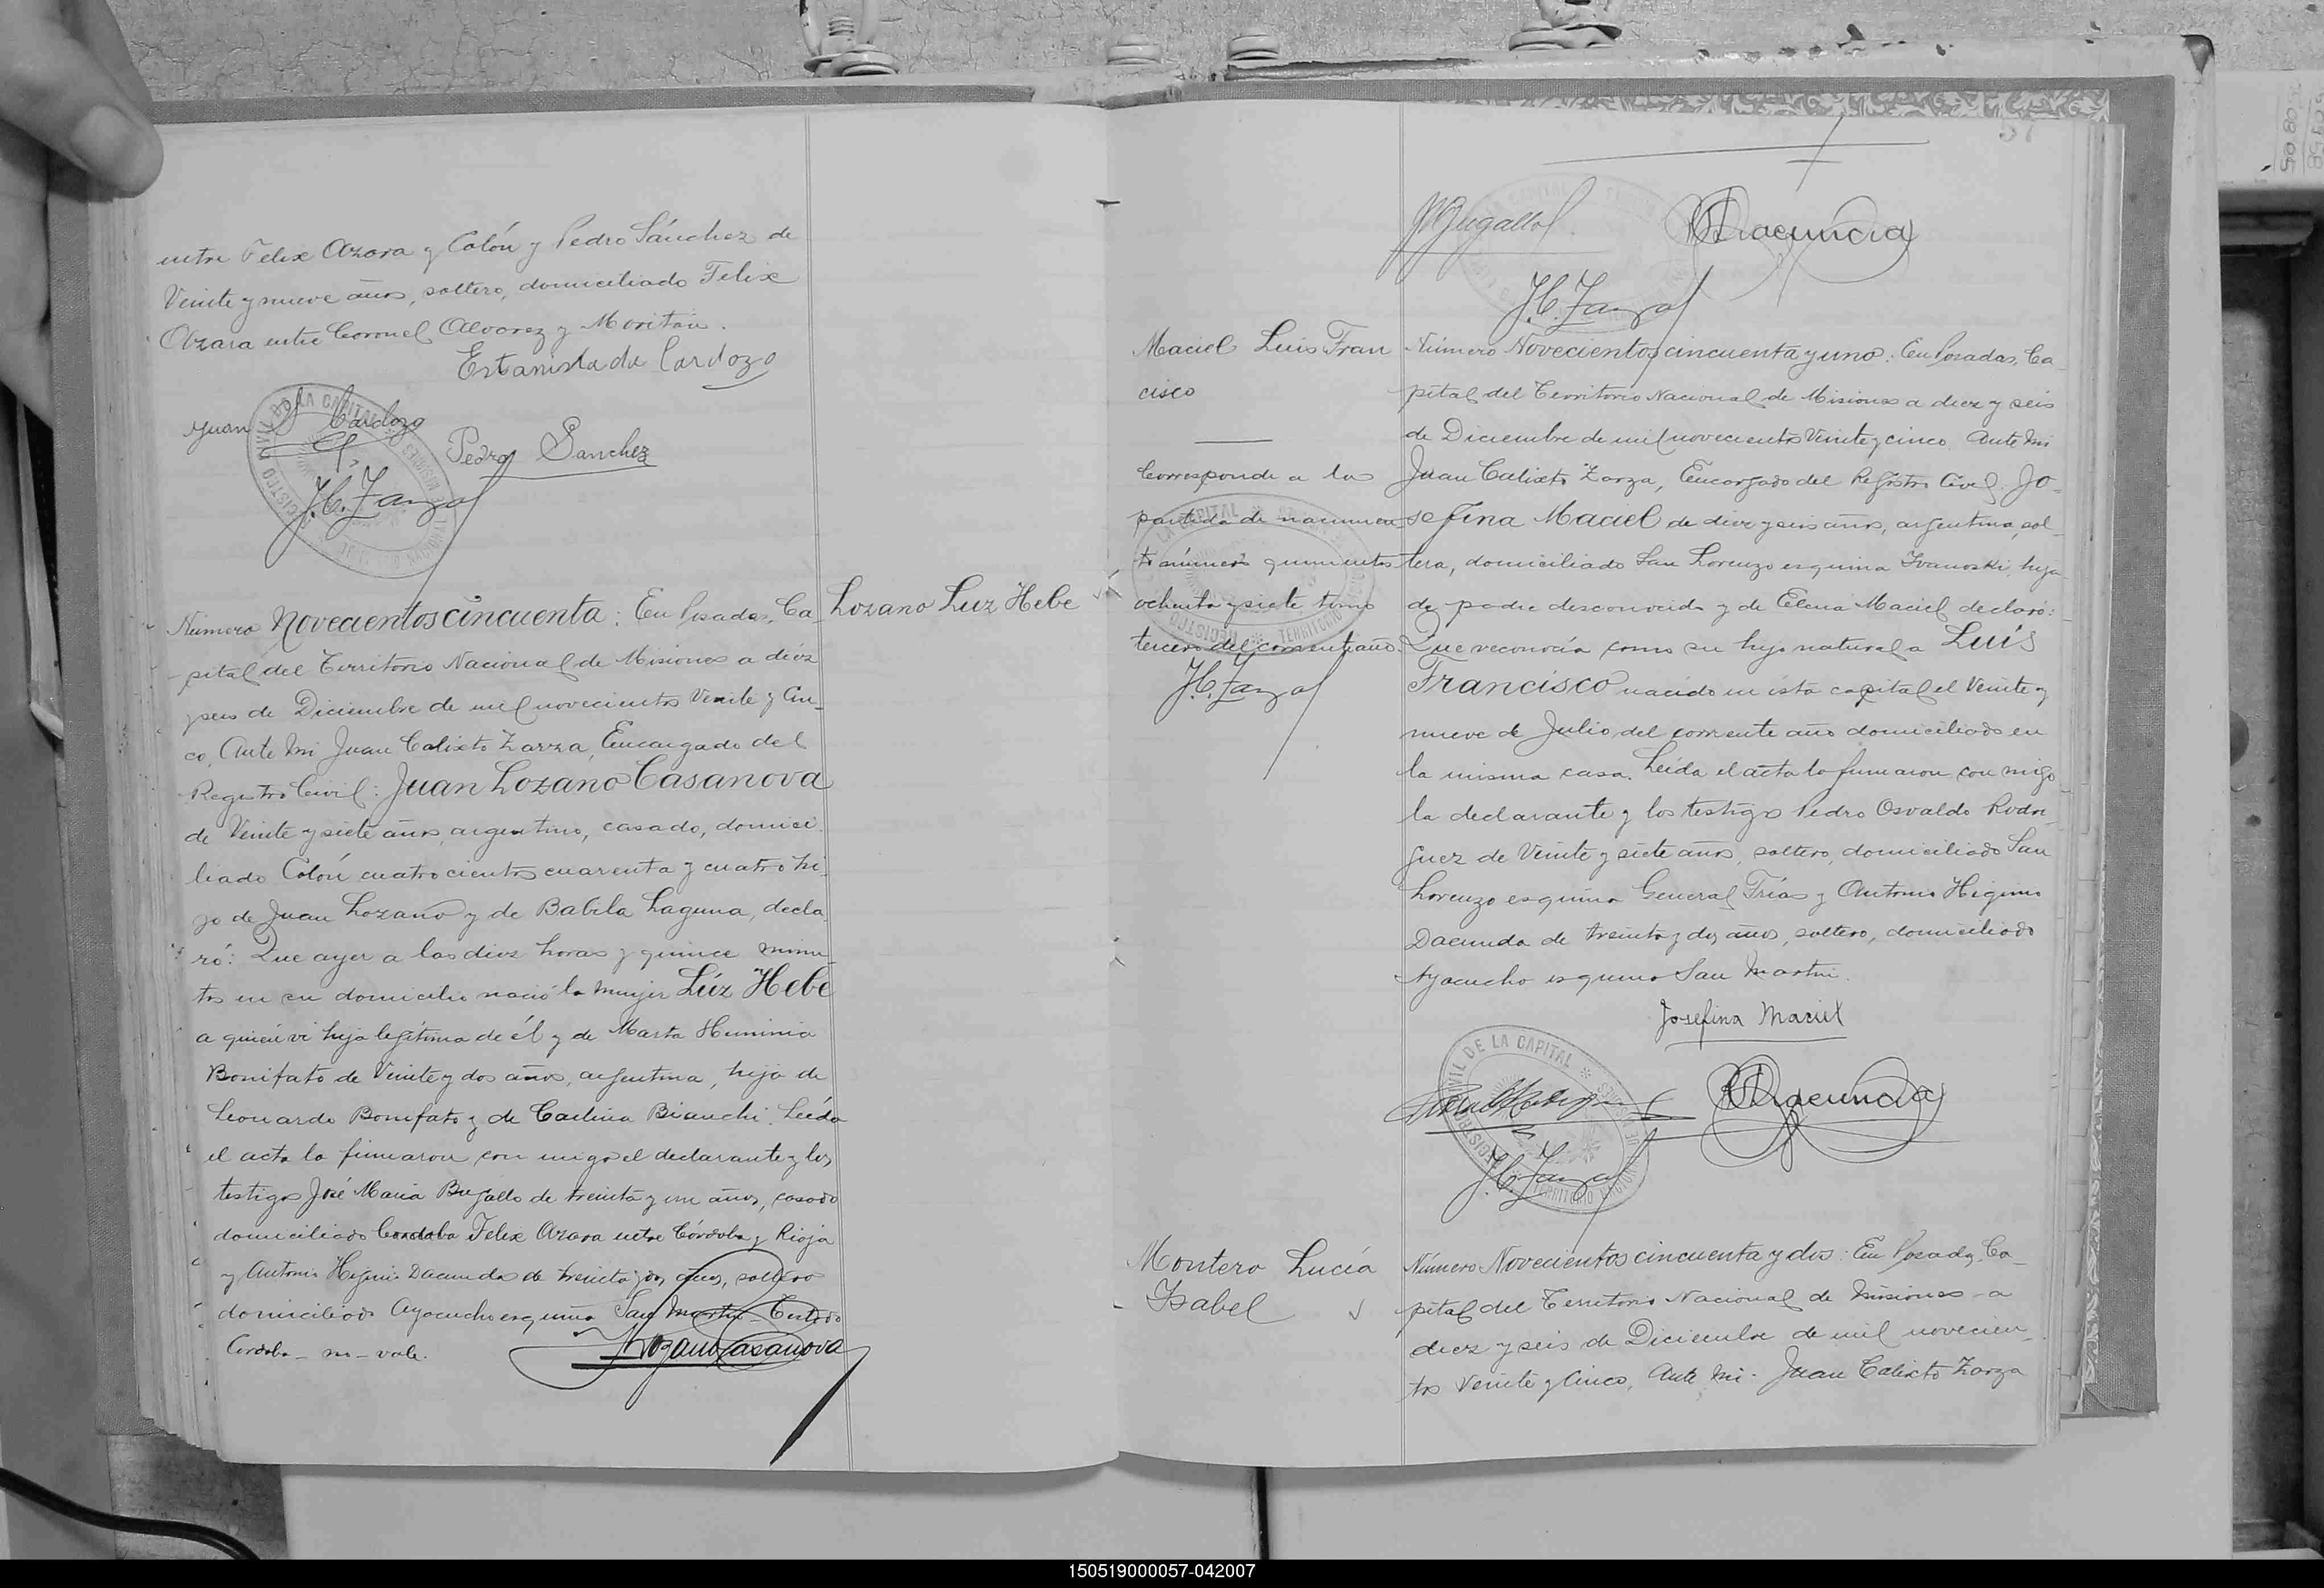 entre Felix Azara y Colón y Pedro Sánchez de
Veinte y nueve años, soltero, domiciliado Felix
Azara entre Coronel Alvarez y Moritán.
Estanislada Cardozo
Juan S Cardozo
Pedro Sanchez
J.C. Zarza
Número Novecientos cincuenta: En Posadas, Ca
Lozano Luz Hebe
pital del Territorio Nacional de Misiones a diez
y seis de Diciembre de mil novecientos Veinte y Cin_
co, Ante Mi Juan Calixto Zarza, Encargado del
Registro Civil: Juan Lozano Casanova
de Veinte y siete años, argentino, casado, domici
liado Colón cuatrocientos cuarenta y cuatro hi_
jo de Juan Lozano y de Babila Laguna, decla
ró: Que ayer a las diez horas y quince minu_
tos en su domicilio nació la mujer Lúz Hebe
a quien vi hija legítima de él y de Marta Herminia
Bonifato de Veinte y dos años, argentina, hija de
Leonardo Bonifato y de Bianchi. Leída
el acta la firmaron con migo el declarante y los
testigos José Maria Bugallo de treinta y un años, casado
domiciliado Cordoba Felix Azara entre Córdoba y Rioja
y Antonio Higinio Dacunda de treinta y dos años, soltero
domiciliado Ayacucho esquina San Martin_ Testado
Cordoba_ no_ vale.
Lozano Casanova
JMBugallo
Dacunda
J.C. Zarza
Maciel Luis Fran
cisco
Corresponde a la
partida de nacimien
to número quinientos
ochenta y siete tomo
tercero del corriente año.
J.C. Zarza
Número Novecientos cincuenta y uno: En Posadas, Ca_
pital del Territorio Nacional de Misiones a diez y seis
de Diciembre de mil novecientos Veinte y cinco. Ante Mi
Juan Calixto Zarza, Encargado del Registro Civil. Jo_
sefina Maciel de diez y seis años, argentina, sol_
tera, domiciliado San Lorenzo esquina Ivanoski, hija
de padre desconocido y de Elena Maciel declaró:
Que reconocía como su hijo natural a Luís
Francisco nacido en ésta capital el Veinte y
nueve de Julio del corriente año domiciliado en
la misma casa. Leída el acta la firmaron con migo
la declarante y los testigos Pedro Osvaldo Rodri_
guez de Veinte y siete años, soltero, domiciliado San
Lorenzo esquina General Frías y Antonio Higinio
Dacunda de treinta y dos años, soltero, domiciliado
Ayacucho esquina San Martin.
Josefina Maciel
Dacunda
J.C. Zarza
REGISTRO CIVIL DE LA CAPITAL
TERRITORIO NACIONAL DE MISIONES
Montero Lucía
Isabel
Número Novecientos cincuenta y dos: En Posadas, Ca_
pital del Territorio Nacional de Misiones_ a
diez y seis de Diciembre de mil novecien_
tos Veinte y Cinco, Ante Mi. Juan Calixto Zarza
150519000057-042007